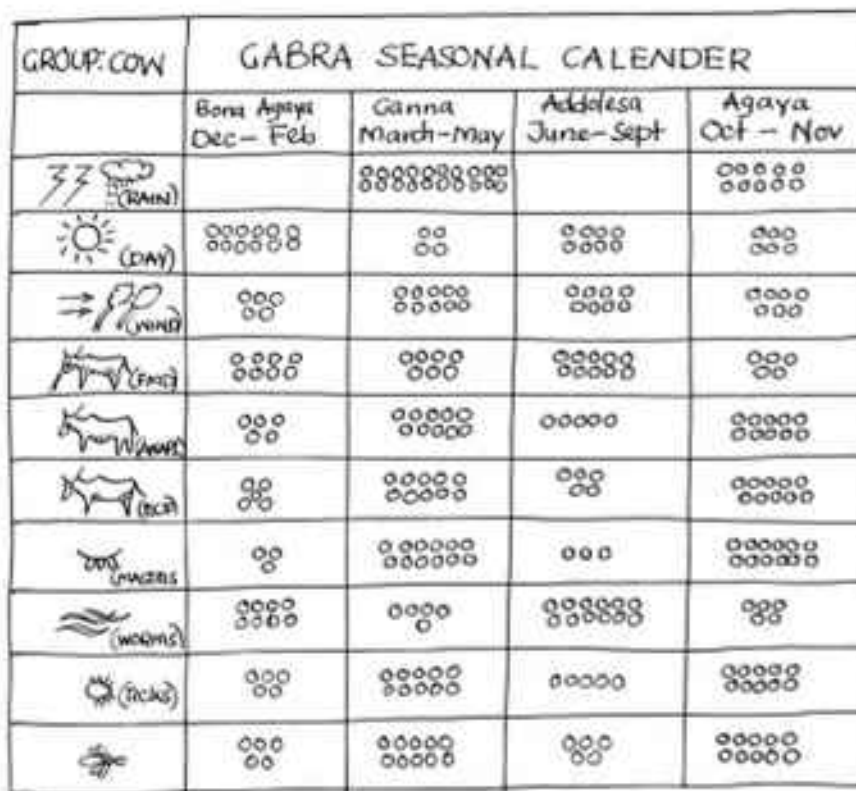 GROUP: COW
GABRA SEASONAL CALENDER
Bona Agaya
Dec - Feb
Ganna
March - May
Addolesa
June - Sept
Agaya
Oct - Nov
(RAIN)
(DAY)
(WIND)
(WORMS)
(TICKS)